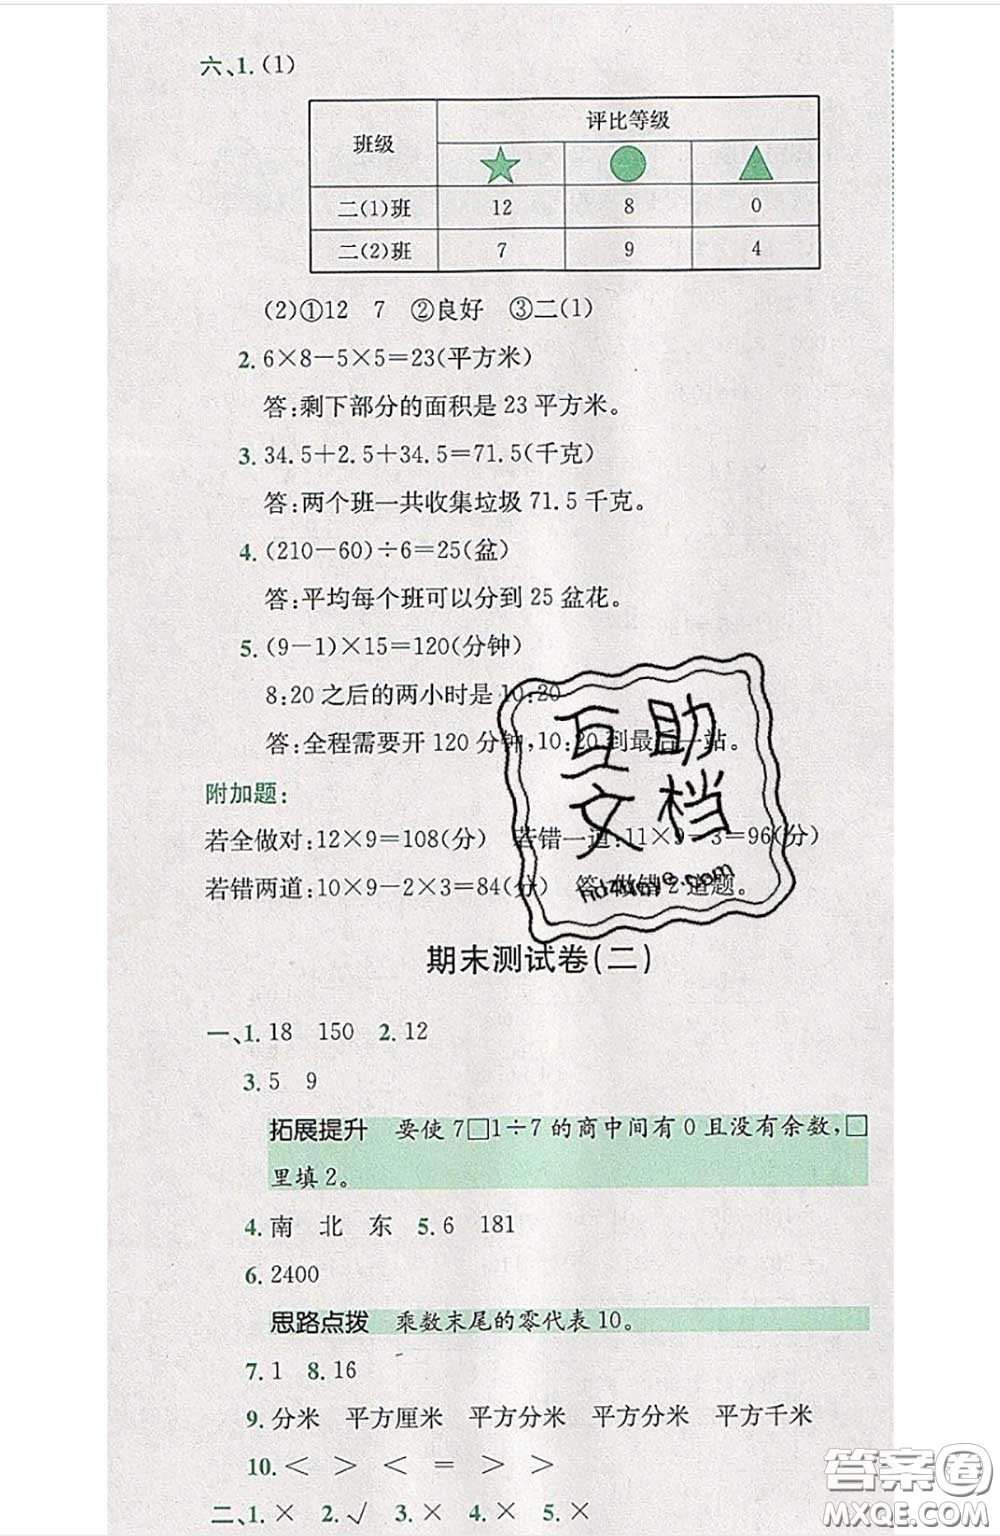 六、1. (1)
班级 评比等级
★ ● ▲
二(1)班 12 8 0
二(2)班 7 9 4
(2)①12 7 ②良好 ③二(1)
2. 6×8-5×5=23(平方米)
答:剩下部分的面积是 23 平方米。
3. 34.5+2.5+34.5=71.5(千克)
答:两个班一共收集垃圾 71.5 千克。
4. (210-60)÷6=25(盆)
答:平均每个班可以分到 25 盆花。
5. (9-1)×15=120(分钟)
8:20 之后的两小时是 10:20
答:全程需要开 120 分钟,10:20 到最后一站。
附加题:
若全做对:12×9=108(分) 若错一道:11×9-3=96(分)
若错两道:10×9-2×3=84(分) 答:做错 2 道题。
互助
文档
期末测试卷(二)
一、1. 18 150 2. 12
3. 5 9
拓展提升 要使 7□1÷7 的商中间有 0 且没有余数,□
里填 2。
4. 南 北 东 5. 6 181
6. 2400
思路点拨 乘数末尾的零代表 10。
7. 1 8. 16
9. 分米 平方厘米 平方分米 平方分米 平方千米
10. < > < = > >
二、1. × 2. √ 3. × 4. × 5. ×
答案圈
MXQE.COM